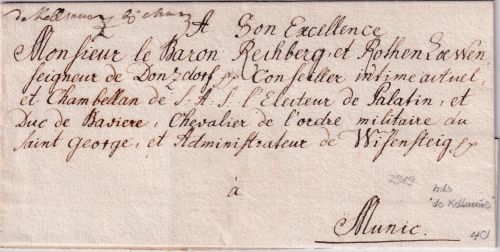 de Kellmunz
A Son Excellence
Monsieur le Baron Rechberg et Rothen Loewen
seigneur de Donzdorf Conseiller intime actuel,
et Chambellan de S. A. S. l'Electeur de Palatin, et
Duc de Baviere, Chevalier de l'ordre militaire du
Saint George, et Administrateur de Wisensteig
à
Munic.
2919
hds
"de Kellmünz"
40